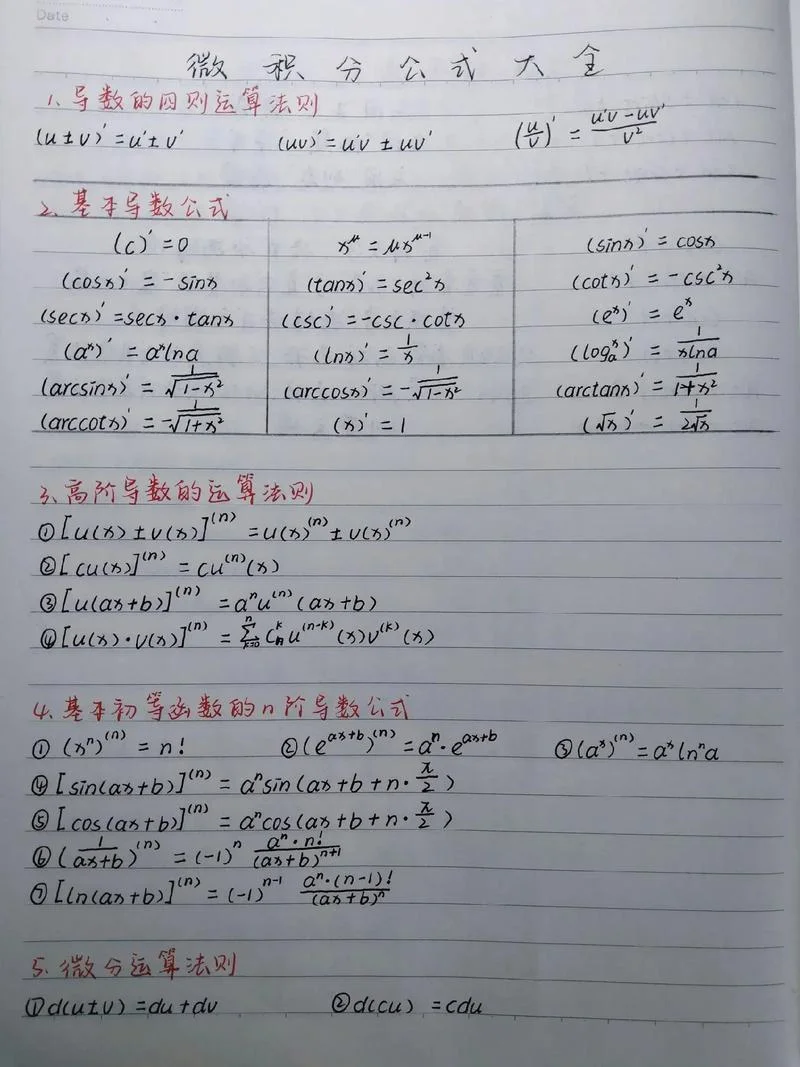 Date
微积分公式大全
1、导数的四则运算法则
(u±v)'=u'±v' (uv)'=u'v±uv' (u/v)'=(u'v-uv')/v²
2、基本导数公式
(c)'=0 x^μ=μx^(μ-1) (sinx)'=cosx
(cosx)'=-sinx (tanx)'=sec²x (cotx)'=-csc²x
(secx)'=secx·tanx (csc)'=-csc·cotx (e^x)'=e^x
(a^x)'=a^x lna (lnx)'=1/x (log_a^x)'=1/(xlna)
(arcsinx)'=1/√(1-x²) (arccosx)'=-1/√(1-x²) (arctanx)'=1/(1+x²)
(arccotx)'=-1/√(1+x²) (x)'=1 (√x)'=1/(2√x)
3、高阶导数的运算法则
①[u(x)±v(x)]^(n)=u(x)^(n)±v(x)^(n)
②[cu(x)]^(n)=cu^(n)(x)
③[u(ax+b)]^(n)=a^n u^(n)(ax+b)
④[u(x)·v(x)]^(n)=∑_(k=0)^n C_n^k u^(n-k)(x)v^(k)(x)
4、基本初等函数的n阶导数公式
①(x^n)^(n)=n! ②(e^(ax+b))^(n)=a^n·e^(ax+b) ③(a^x)^(n)=a^x ln^n a
④[sin(ax+b)]^(n)=a^n sin(ax+b+n·π/2)
⑤[cos(ax+b)]^(n)=a^n cos(ax+b+n·π/2)
⑥(1/(ax+b))^(n)=(-1)^n (a^n·n!)/(ax+b)^(n+1)
⑦[ln(ax+b)]^(n)=(-1)^(n-1) (a^n·(n-1)!)/(ax+b)^n
5、微分运算法则
①d(u±v)=du+dv ②d(cu)=cdu